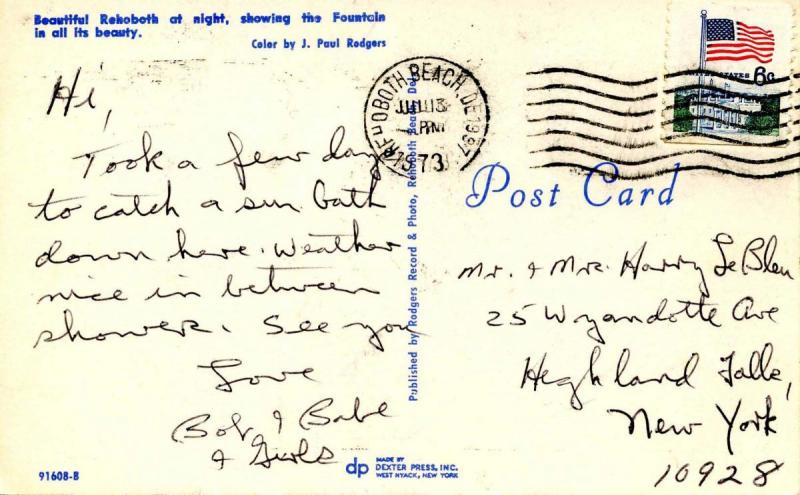 Beautiful Rehoboth at night, showing the Fountain
in all its beauty.
Color by J. Paul Rodgers
Hi,
Took a few day
to catch a sun bath
down here. Weather
nice in between
showers. See you
Love
Bob & Babe
& Girls
91608-B
Published by Rodgers Record & Photo, Rehoboth Beach, Del.
dp MADE BY
DEXTER PRESS, INC.
WEST NYACK, NEW YORK
REHOBOTH BEACH, DE 199
JUL 13
PM
1973
6c
Post Card
Mr. & Mrs. Harry LeBleu
25 Wyandotte Ave
Highland Falls,
New York
10928